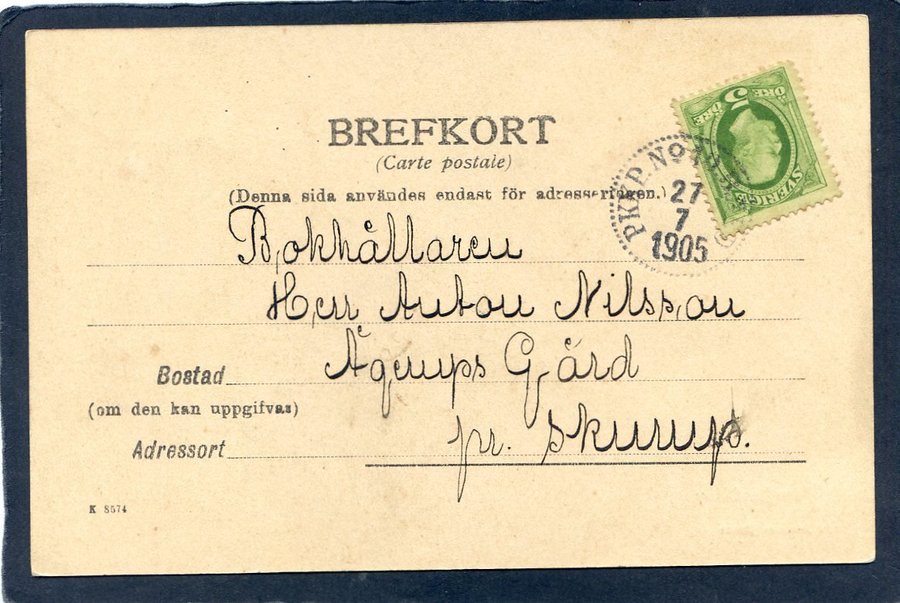 BREFKORT
(Carte postale)
(Denna sida användes endast för adresseringen.)
5
ÖRE ÖRE
SVERIGE
PKXP. No
27
7
1905
Bokhållaren
Herr Anton Nilsson
Ågerups Gård
Bostad
(om den kan uppgifvas)
pr. Skurup.
Adressort
K 8574